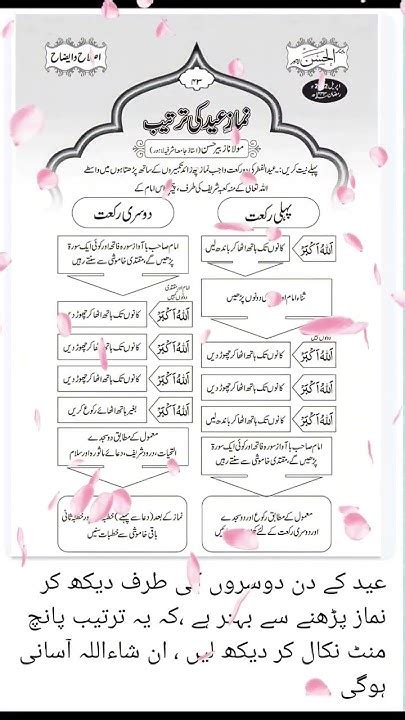 الحسن
۴۳
نمازِ عید کی ترتیب
مولانا زبیر حسن (استاذ جامعہ اشرفیہ لاہور)
پہلے نیت کریں: عید الفطر کی دو رکعت واجب نماز چھ زائد تکبیروں کے ساتھ پڑھتا ہوں میں واسطے
اللہ تعالیٰ کے منہ کعبہ شریف کی طرف، پیچھے اس امام کے
پہلی رکعت
اَللّٰهُ اَكْبَرُ کانوں تک ہاتھ اٹھا کر باندھ لیں
ثناء امام اور دونوں پڑھیں
اَللّٰهُ اَكْبَرُ کانوں تک ہاتھ اٹھا کر چھوڑ دیں
اَللّٰهُ اَكْبَرُ کانوں تک ہاتھ اٹھا کر چھوڑ دیں
اَللّٰهُ اَكْبَرُ کانوں تک ہاتھ اٹھا کر باندھ لیں
امام صاحب با آواز سورہ فاتحہ اور کوئی ایک سورۃ
پڑھیں گے، مقتدی خاموشی سے سنتے رہیں
معمول کے مطابق رکوع اور دو سجدے
اور دوسری رکعت کے لئے
دوسری رکعت
امام صاحب با آواز سورہ فاتحہ اور کوئی ایک سورۃ
پڑھیں گے، مقتدی خاموشی سے سنتے رہیں
امام اور مقتدی
دونوں کہیں
اَللّٰهُ اَكْبَرُ کانوں تک ہاتھ اٹھا کر چھوڑ دیں
اَللّٰهُ اَكْبَرُ کانوں تک ہاتھ اٹھا کر چھوڑ دیں
اَللّٰهُ اَكْبَرُ کانوں تک ہاتھ اٹھا کر چھوڑ دیں
اَللّٰهُ اَكْبَرُ بغیر ہاتھ اٹھائے رکوع کریں
معمول کے مطابق دو سجدے
التحیات، درود شریف، دعائے ماثورہ اور سلام
نماز کے بعد (دعا سے پہلے) خطبہ ثانی
باقی خاموشی سے خطبات سنیں
عید کے دن دوسروں کی طرف دیکھ کر
نماز پڑھنے سے بہتر ہے ،کہ یہ ترتیب پانچ
منٹ نکال کر دیکھ لیں ، ان شاءاللہ آسانی
ہوگی